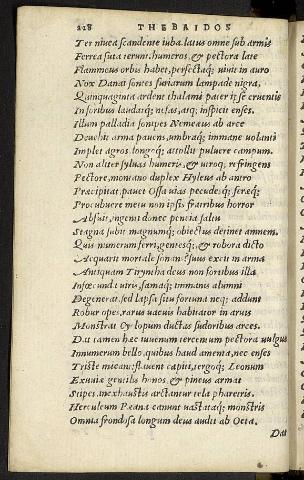 228 THEBAIDOS
Ter niuea scandente iuba. latus omne sub armis
Ferrea suta terunt, humeros, & pectora late
Flammeus orbis habet, perfectaq; uiuit in auro
Nox Danai. fontes furiarum lampade nigra.
Quinquaginta ardent thalami. pater ipse cruentis
In foribus laudatq; nefas, atq; inspicit enses.
Illum palladia sonipes Nemeaeus ab arce
Deuehit arma pauens, umbraq; immane uolanti
Implet agros, longoq; attollit puluere campum.
Non aliter syluas humeris, & utroq; refringens
Pectore, montano duplex Hyleus ab antro
Praecipitat, pauet Ossa uias pecudesq; feraeq;
Procubuere metu. non ipsis fratribus horror
Abfuit, ingenti donec peneia saltu
Stagna subit magnumq; obiectus detinet amnem.
Quis numerum ferri, gentesq;, & robora dicto
Aequarit mortale sonans? suus excit in arma
Antiquam Tiryntha deus. non fortibus illa
Infoecunda uiris, famaq; immanis alumni
Degenerat. sed lapsa situ fortuna neq; addunt
Robur opes, rarus uacuis habitator in aruis
Monstrat Cyclopum ductas sudoribus arces.
Dat tamen haec iuuenum tercentum pectora uulgus
Innumerum bello, quibus haud amenta, nec enses
Triste micant: flauent capiti, tergoq; Leonum
Exuuiae. gentilis honos. & pineus armat
Stipes. inexhaustis arctantur tela pharetris.
Herculeum Paeana canunt uastataq; monstris
Omnia frondosa longum deus audit ab Oeta.
Dat